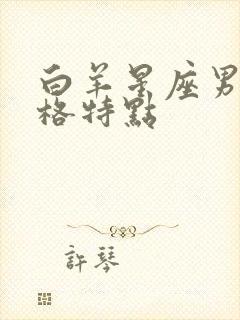 白羊星座男
格特點
許琴